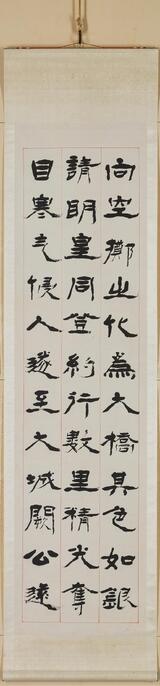 向空擲之化為大橋其色如銀
請明皇同登約行數里精光奪
目寒氣侵人遂至大城闕公遠